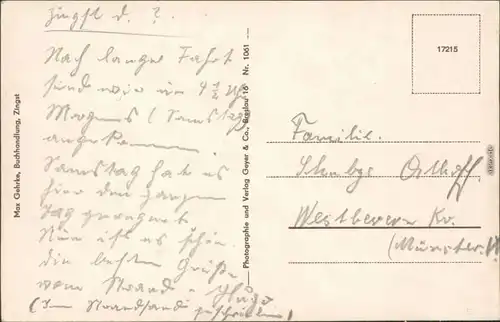 Zingst d. ?
Nach langer Fahrt
sind wir um 4 1/2 Uhr
Morgens (Samstag)
angekommen.
Samstag hat es
hier den ganzen
Tag geregnet
Nun ist es schön.
die besten Grüße
vom Strand - Hugo
(Im Strandsand geschrieben)
Max Gehrke, Buchhandlung, Zingst
Photographie und Verlag Geyer & Co., Breslau 16 Nr. 1061
17215
Familie.
Osthoff
Westbevern Kr.
(Münster.